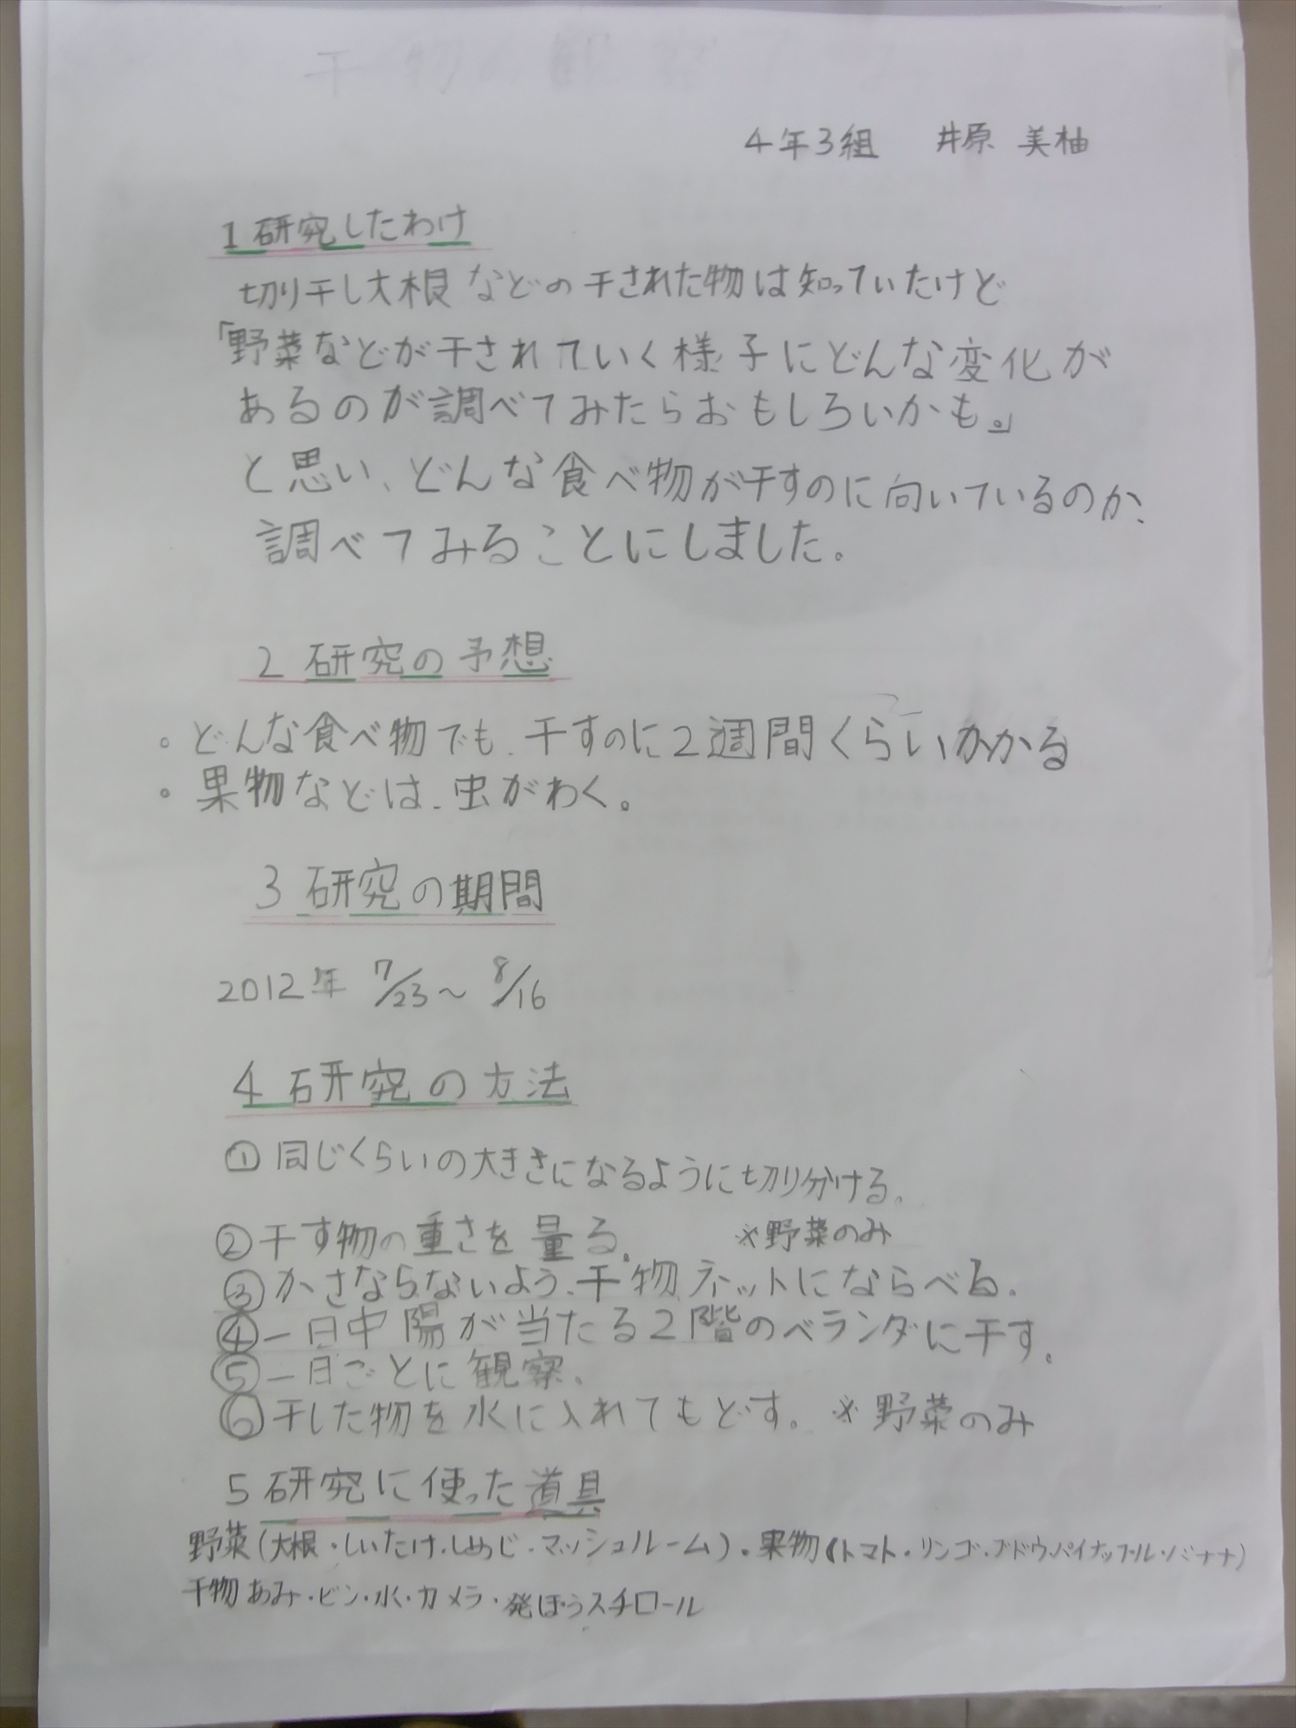 干物の観察
4年3組 井原 美柚
1 研究したわけ
切り干し大根などの干された物は知っていたけど
「野菜などが干されていく様子にどんな変化が
あるのが調べてみたらおもしろいかも。」
と思い、どんな食べ物が干すのに向いているのか、
調べてみることにしました。
2 研究の予想
。どんな食べ物でも、干すのに2週間くらいかかる
。果物などは、虫がわく。
3 研究の期間
2012年 7/23〜 8/16
4 研究の方法
①同じくらいの大きさになるように切り分ける。
②干す物の重さを量る。 ※野菜のみ
③かさならないよう、干物ネットにならべる。
④一日中陽が当たる2階のベランダに干す。
⑤一日ごとに観察。
⑥干した物を水に入れてもどす。※野菜のみ
5 研究に使った道具
野菜(大根・しいたけ・しめじ・マッシュルーム)・果物(トマト・リンゴ・ブドウ・パイナップル・バナナ)
干物あみ・ビン・水・カメラ・発ぽうスチロール